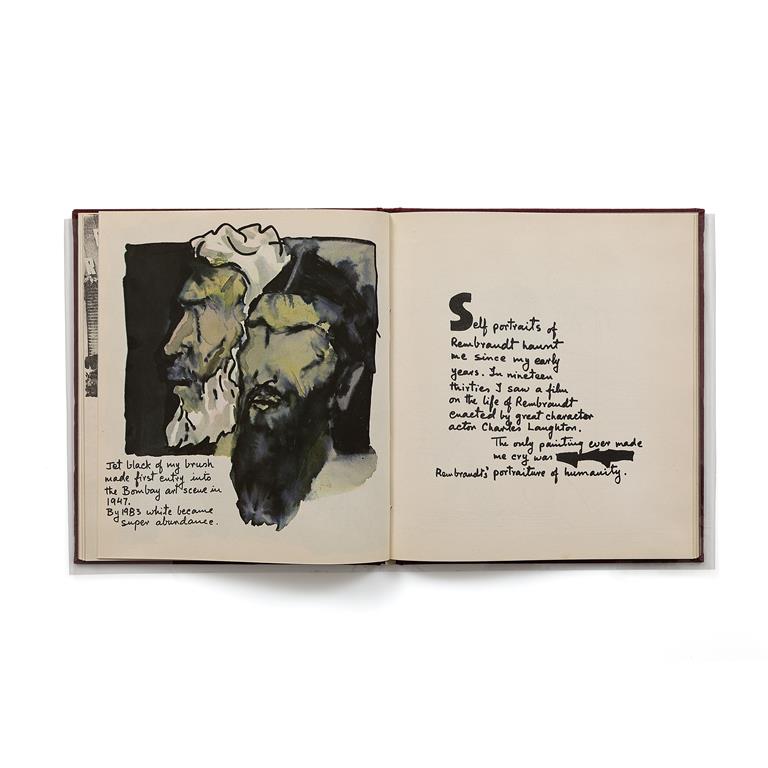 Jet black of my brush
made first entry into
the Bombay art scene in
1947.
By 1983 white became
super abundance.
Self portraits of
Rembrandt haunt
me since my early
years. In nineteen
thirties I saw a film
on the life of Rembrandt
enacted by great character
actor Charles Laughton.
The only painting ever made
me cry was
Rembrandt's portraiture of humanity.